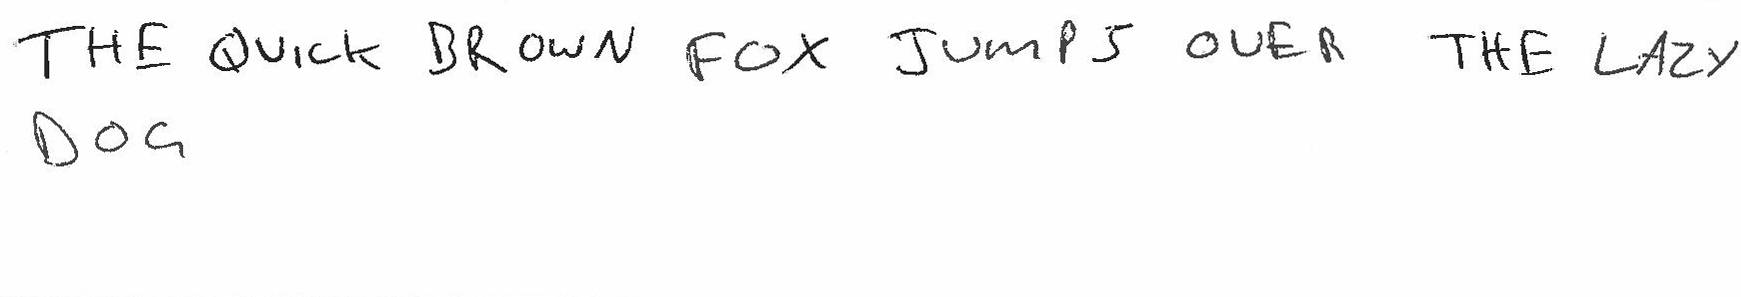 THE QUICK BROWN FOX JUMPS OVER THE LAZY
DOG